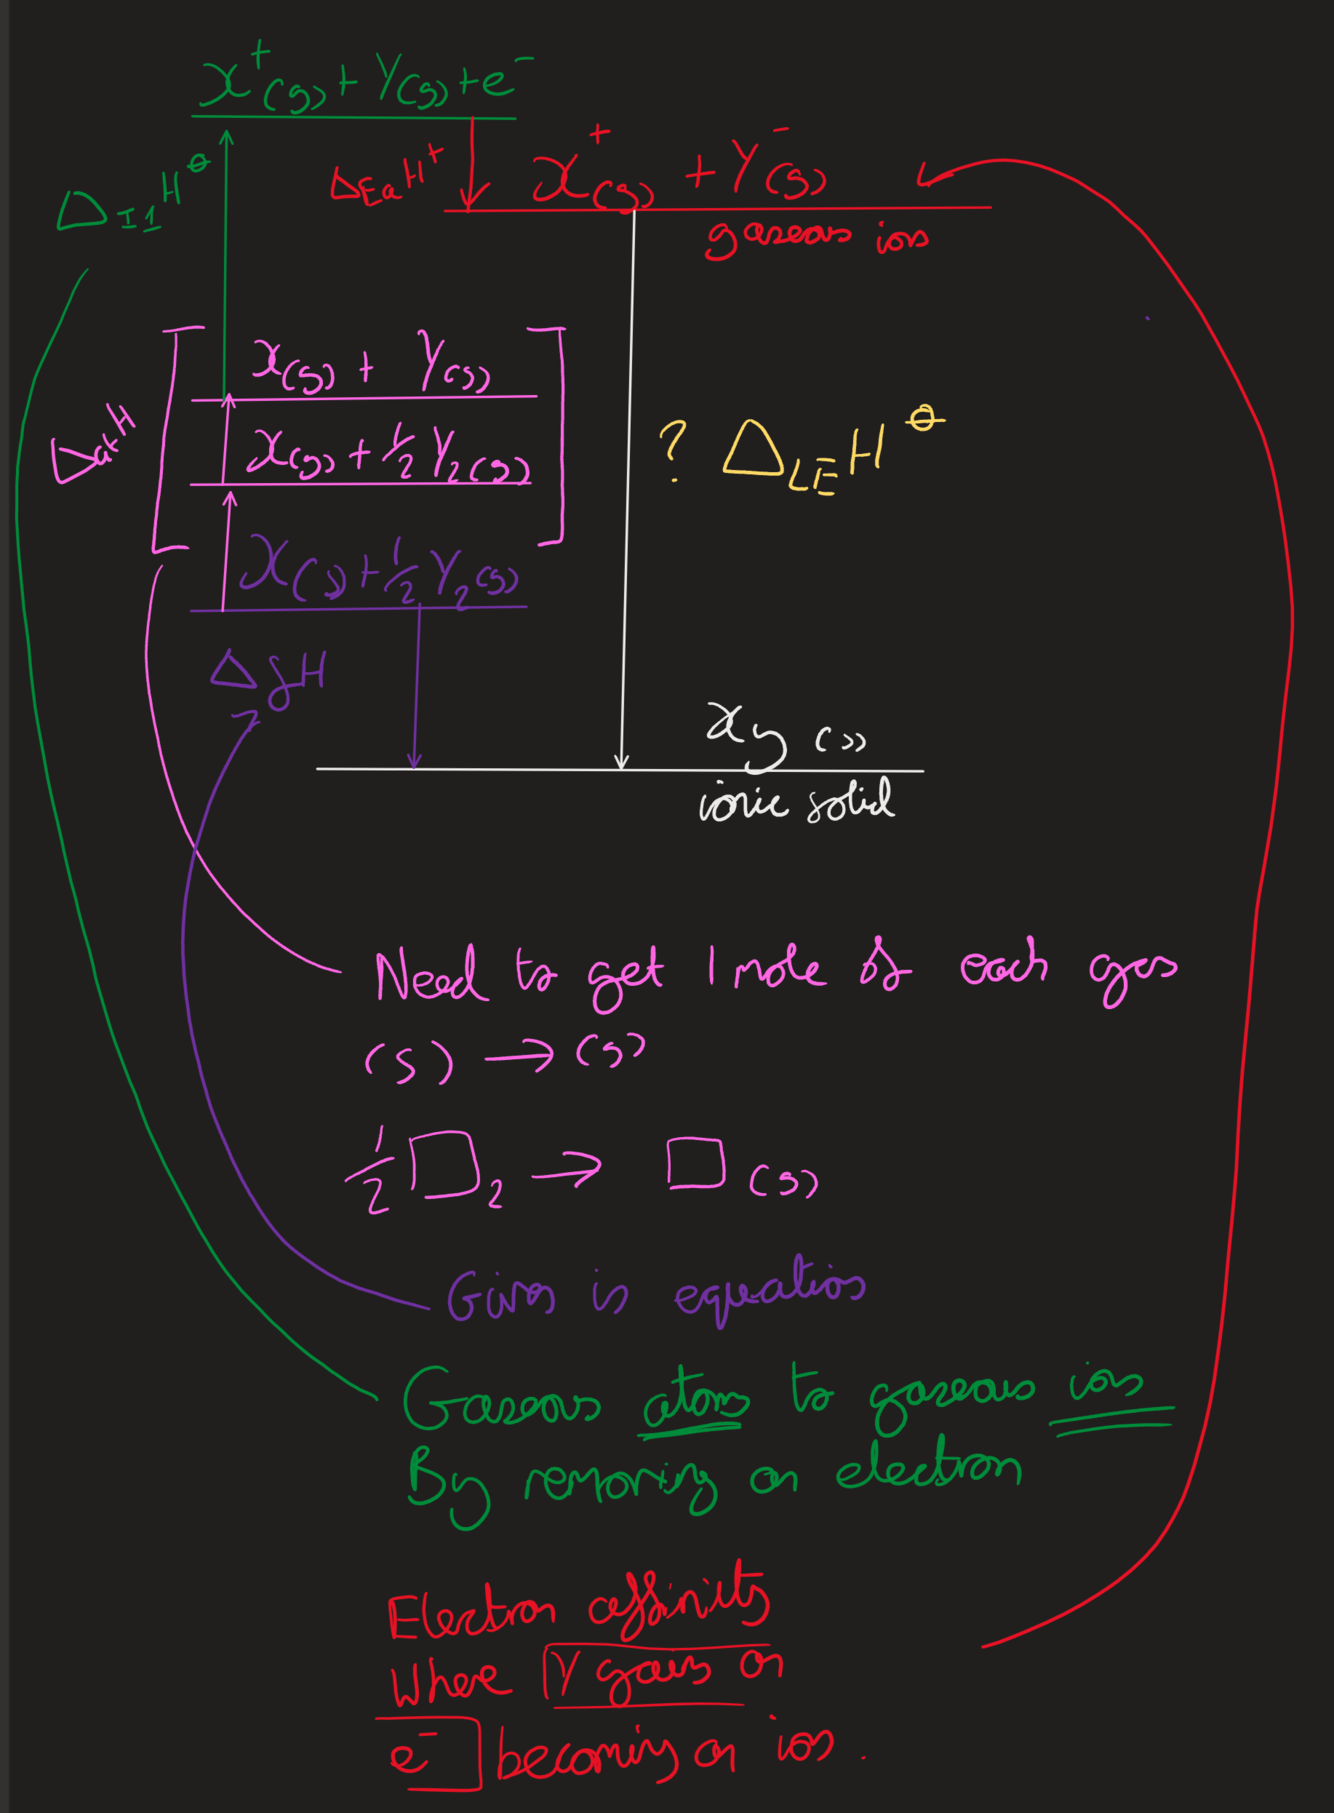 x⁺(g) + Y(g) + e⁻
Δ_I1 H^⦵
Δ_Ea H^+
x⁺(g) + Y⁻(g)
gaseous ions
x(g) + Y(g)
Δ_at H
x(g) + ½ Y₂(g)
? Δ_LE H^⦵
x(s) + ½ Y₂(g)
Δ_f H
xy (s)
ionic solid
Need to get 1 mole of each gas
(s) → (g)
½ □₂ → □ (g)
Given in equation
Gaseous atoms to gaseous ions
By removing an electron
Electron affinity
Where Y gains an
e⁻ becoming an ion.